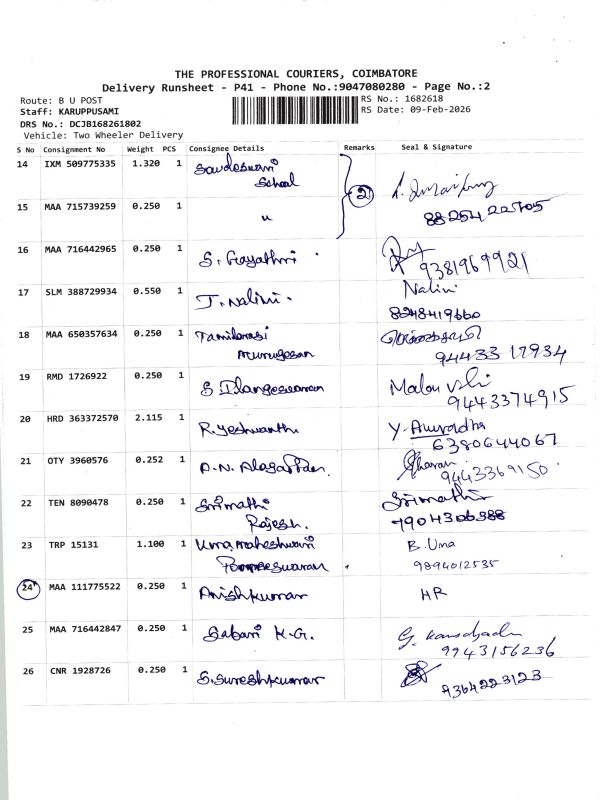 THE PROFESSIONAL COURIERS, COIMBATORE
Delivery Runsheet - P41 - Phone No.:9047080280 - Page No.:2
Route: B U POST
RS No.: 1682618
Staff: KARUPPUSAMI
RS Date: 09-Feb-2026
DRS No.: DCJB168261802
Vehicle: Two Wheeler Delivery
S No Consignment No Weight PCS Consignee Details Remarks Seal & Signature
14 IXM 509775335 1.320 1
School
2
15 MAA 715739259 0.250 1 "
88254 22705
16 MAA 716442965 0.250 1 S. Gayathri
9381969921
17 SLM 388729934 0.550 1 J. Nalini. Nalini
8248419660
18 MAA 650357634 0.250 1 Tamilarasi
Murugesan 94433 17934
19 RMD 1726922 0.250 1 S Ilangeswaran
9443374915
20 HRD 363372570 2.115 1 R. Yeshwanth Y. Anuradha
6380644067
21 OTY 3960576 0.252 1 A.N. Alagar
9443369150
22 TEN 8090478 0.250 1 Srimathi Srimathi
Rajesh. 7904306388
23 TRP 15131 1.100 1 Uma maheshwari B. Uma
9894012535
24 MAA 111775522 0.250 1 Anishkumar HR
25 MAA 716442847 0.250 1 Sabari K.G. G.
9943156236
26 CNR 1928726 0.250 1 S. Sureshkumar
9364223123